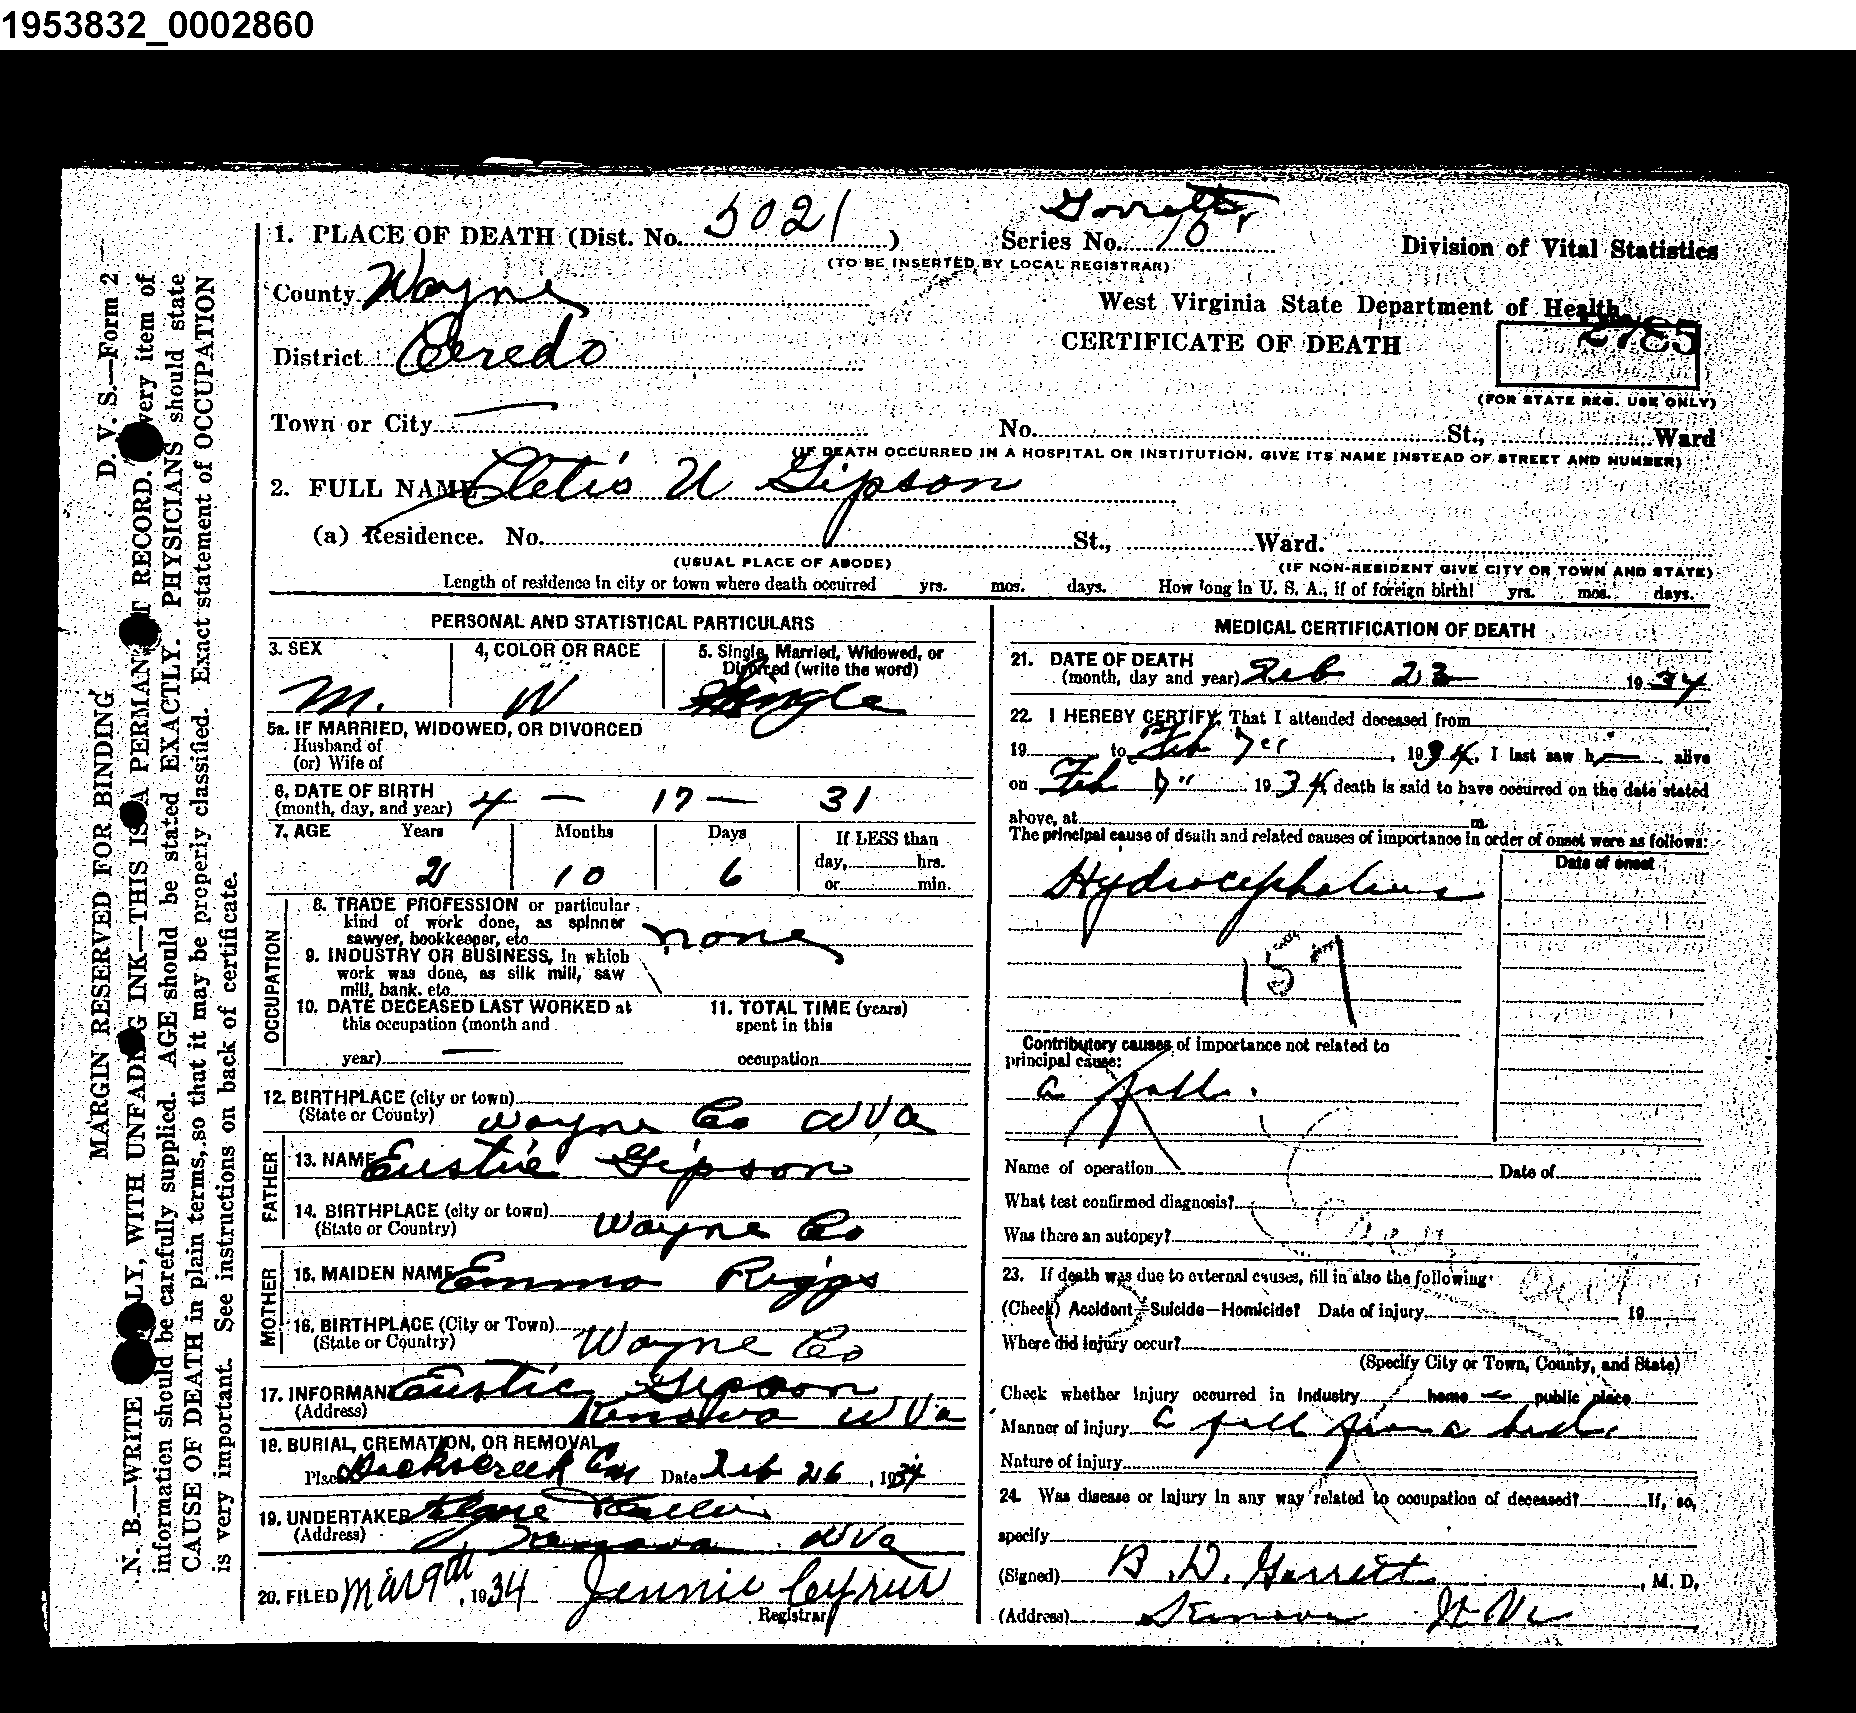 1953832_0002860
1. PLACE OF DEATH (Dist. No. 5021 )
Garrett
Series No. 70
(TO BE INSERTED BY LOCAL REGISTRAR)
Division of Vital Statistics
County Wayne
West Virginia State Department of Health
District Ceredo
CERTIFICATE OF DEATH
2785
(FOR STATE REG. USE ONLY)
Town or City —
No. St., Ward
(IF DEATH OCCURRED IN A HOSPITAL OR INSTITUTION, GIVE ITS NAME INSTEAD OF STREET AND NUMBER)
2. FULL NAME Cletis U Gipson
(a) Residence. No. St., Ward.
(USUAL PLACE OF ABODE) (IF NON-RESIDENT GIVE CITY OR TOWN AND STATE)
Length of residence in city or town where death occurred yrs. mos. days. How long in U. S. A., if of foreign birth? yrs. mos. days.
PERSONAL AND STATISTICAL PARTICULARS
3. SEX 4, COLOR OR RACE 5. Single, Married, Widowed, or
Divorced (write the word)
M. W Single
5a. IF MARRIED, WIDOWED, OR DIVORCED
Husband of
(or) Wife of
6. DATE OF BIRTH
(month, day, and year) 4 — 17 — 31
7. AGE Years Months Days If LESS than
day, hrs.
2 10 6 or min.
OCCUPATION
8. TRADE PROFESSION or particular
kind of work done, as spinner
sawyer, bookkeeper, etc. none
9. INDUSTRY OR BUSINESS, in which
work was done, as silk mill, saw
mill, bank. etc.
10. DATE DECEASED LAST WORKED at 11. TOTAL TIME (years)
this occupation (month and spent in this
year) — occupation
12. BIRTHPLACE (city or town)
(State or County) Wayne Co W Va
FATHER
13. NAME Eustie Gipson
14. BIRTHPLACE (city or town)
(State or Country) Wayne Co
MOTHER
15. MAIDEN NAME Emma Riggs
16. BIRTHPLACE (City or Town)
(State or Country) Wayne Co
17. INFORMANT Eustie Gipson
(Address) Kenova W Va
18. BURIAL, CREMATION, OR REMOVAL
Place Cem Date Feb 26, 1934
19. UNDERTAKER
(Address) Kenova W Va
20. FILED Mar 9th, 1934 Jennie Cyrus
Registrar
MEDICAL CERTIFICATION OF DEATH
21. DATE OF DEATH
(month, day and year) Feb 23 1934
22. I HEREBY CERTIFY, That I attended deceased from
19 to Feb , 1934, I last saw h alive
on Feb 1934 death is said to have occurred on the date stated
above, at m.
The principal cause of death and related causes of importance in order of onset were as follows:
Date of onset
Hydrocephalus
157
Contributory causes of importance not related to
principal cause:
a fall.
Name of operation Date of
What test confirmed diagnosis?
Was there an autopsy?
23. If death was due to external causes, fill in also the following:
(Check) Accident—Suicide—Homicide? Date of injury 19
Where did injury occur?
(Specify City or Town, County, and State)
Check whether injury occurred in industry home public place
Manner of injury a fall from a bed.
Nature of injury
24. Was disease or injury in any way related to occupation of deceased? If, so,
specify
(Signed) B. D. Garrett, M. D.
(Address) Kenova W Va
D. V. S.—Form 2
MARGIN RESERVED FOR BINDING
N. B.—WRITE LY, WITH UNFADING INK—THIS IS A PERMANENT RECORD. Every item of
information should be carefully supplied. AGE should be stated EXACTLY. PHYSICIANS should state
CAUSE OF DEATH in plain terms, so that it may be properly classified. Exact statement of OCCUPATION
is very important. See instructions on back of certificate.